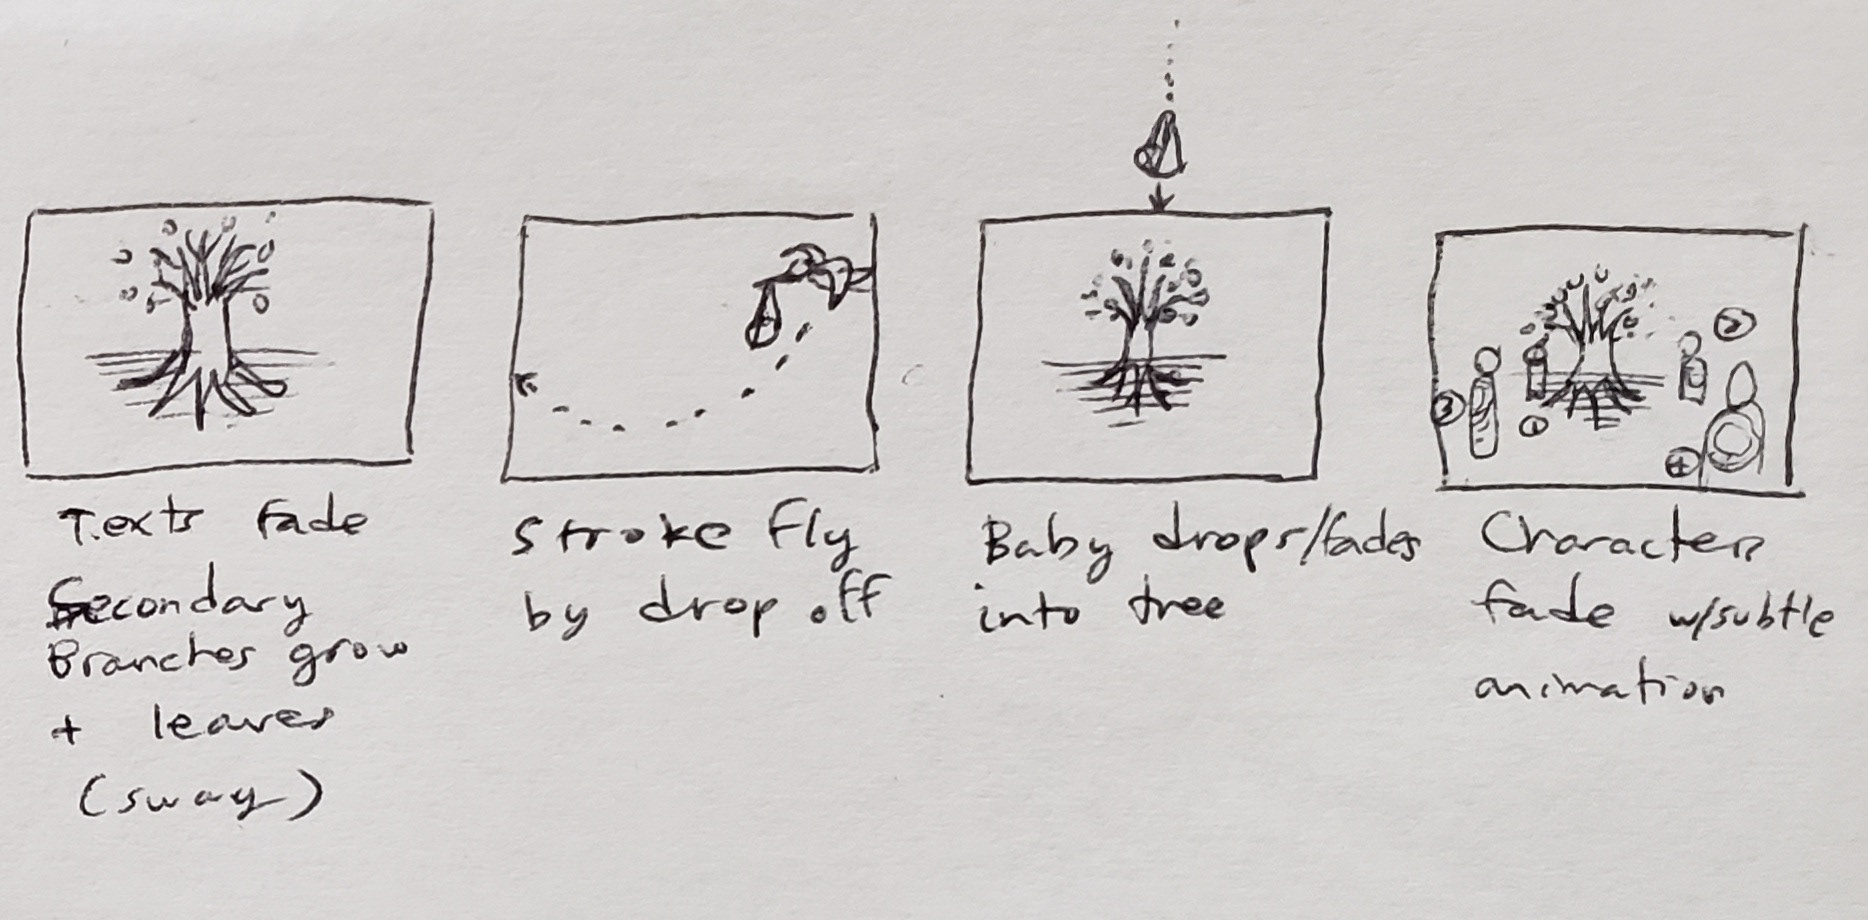 Texts fade
Secondary
Branches grow
+ leaves
(sway)
Stroke fly
by drop off
Baby drops/fades
into tree
3
1
2
4
Characters
fade w/subtle
animation